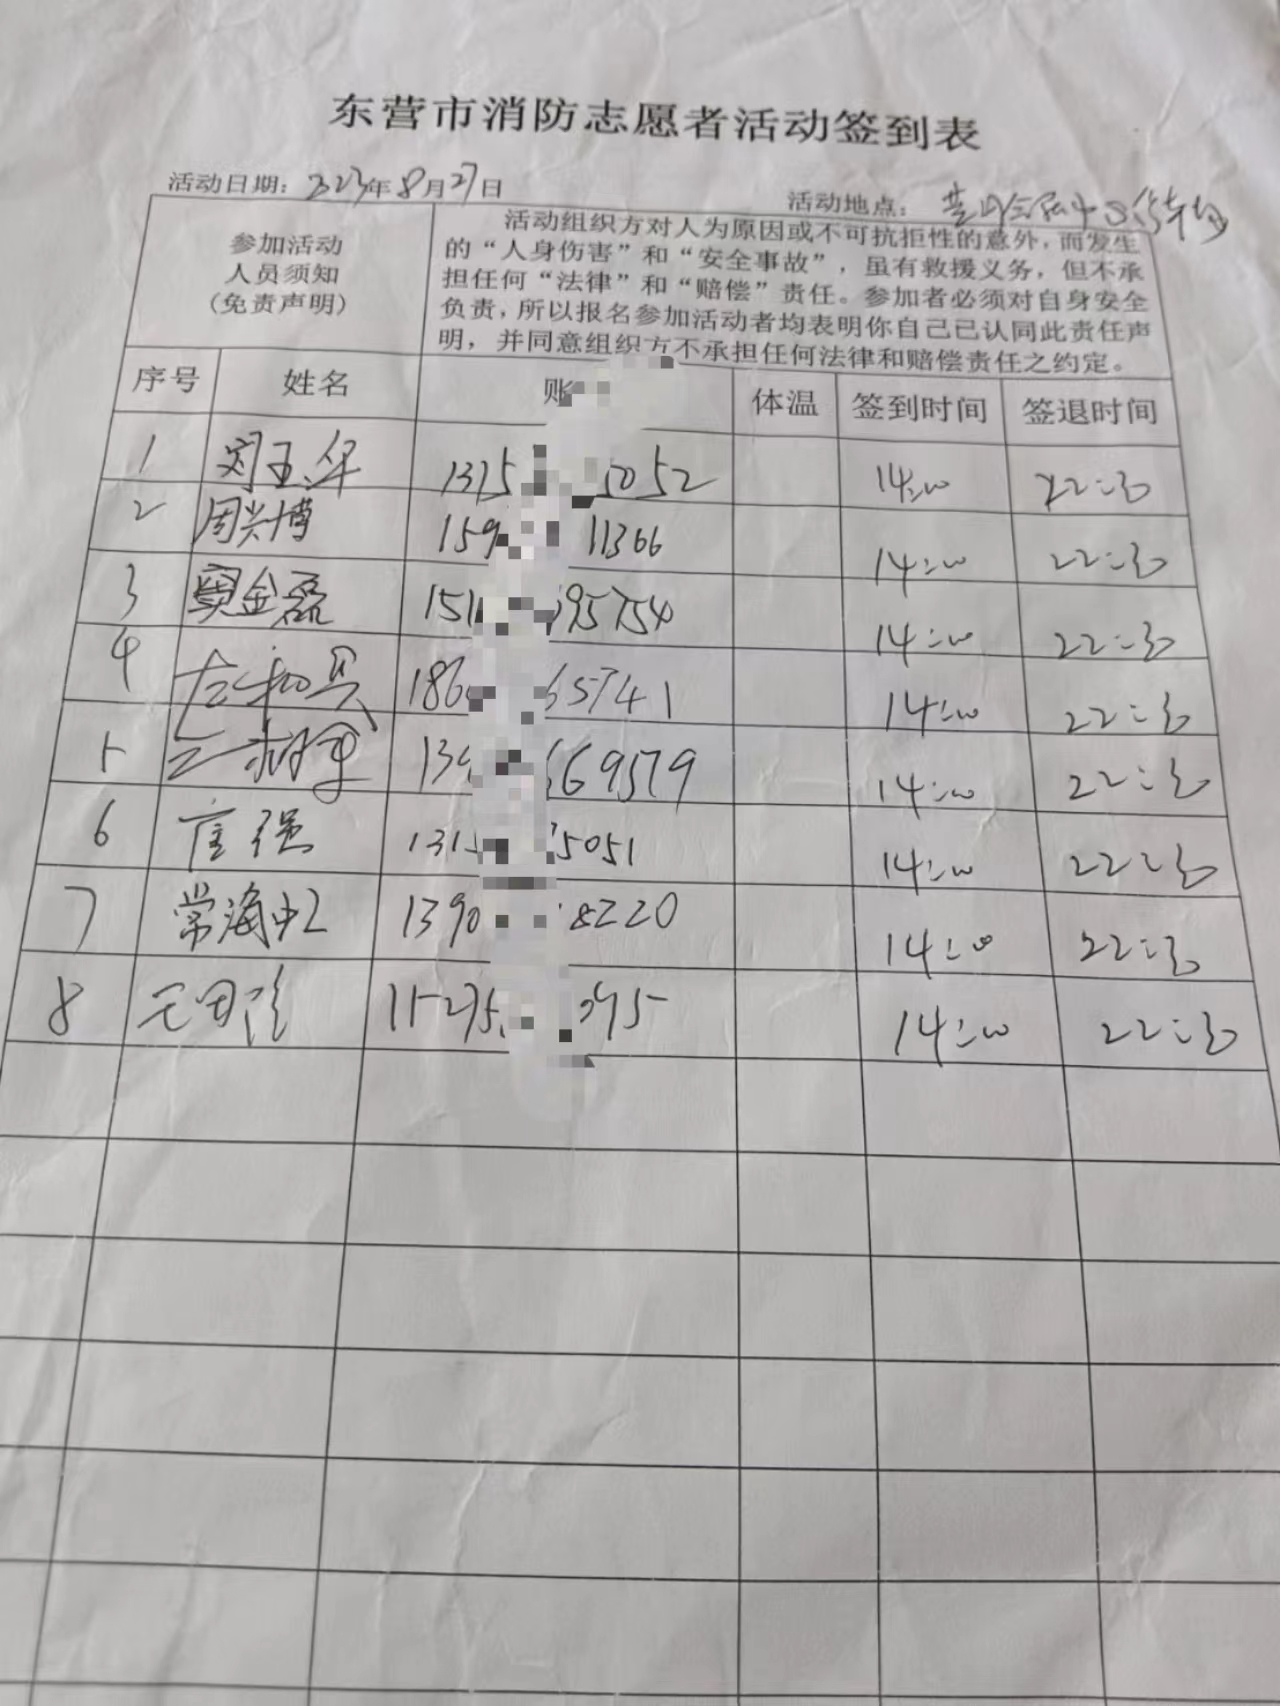 东营市消防志愿者活动签到表
活动日期：2023年8月27日 活动地点：
参加活动
人员须知
（免责声明）
活动组织方对人为原因或不可抗拒性的意外，而发生
的“人身伤害”和“安全事故”，虽有救援义务，但不承
担任何“法律”和“赔偿”责任。参加者必须对自身安全
负责，所以报名参加活动者均表明你自己已认同此责任声
明，并同意组织方不承担任何法律和赔偿责任之约定。
序号 姓名 账 体温 签到时间 签退时间
1 刘玉华 1315 5052 14:00 22:30
2 周兴博 159 11366 14:00 22:30
3 窦金磊 151 95754 14:00 22:30
4 186 65741 14:00 22:30
5 139 669579 14:00 22:30
6 崔强 1315 5051 14:00 22:30
7 常海虹 1390 8220 14:00 22:30
8 15275 095 14:00 22:30